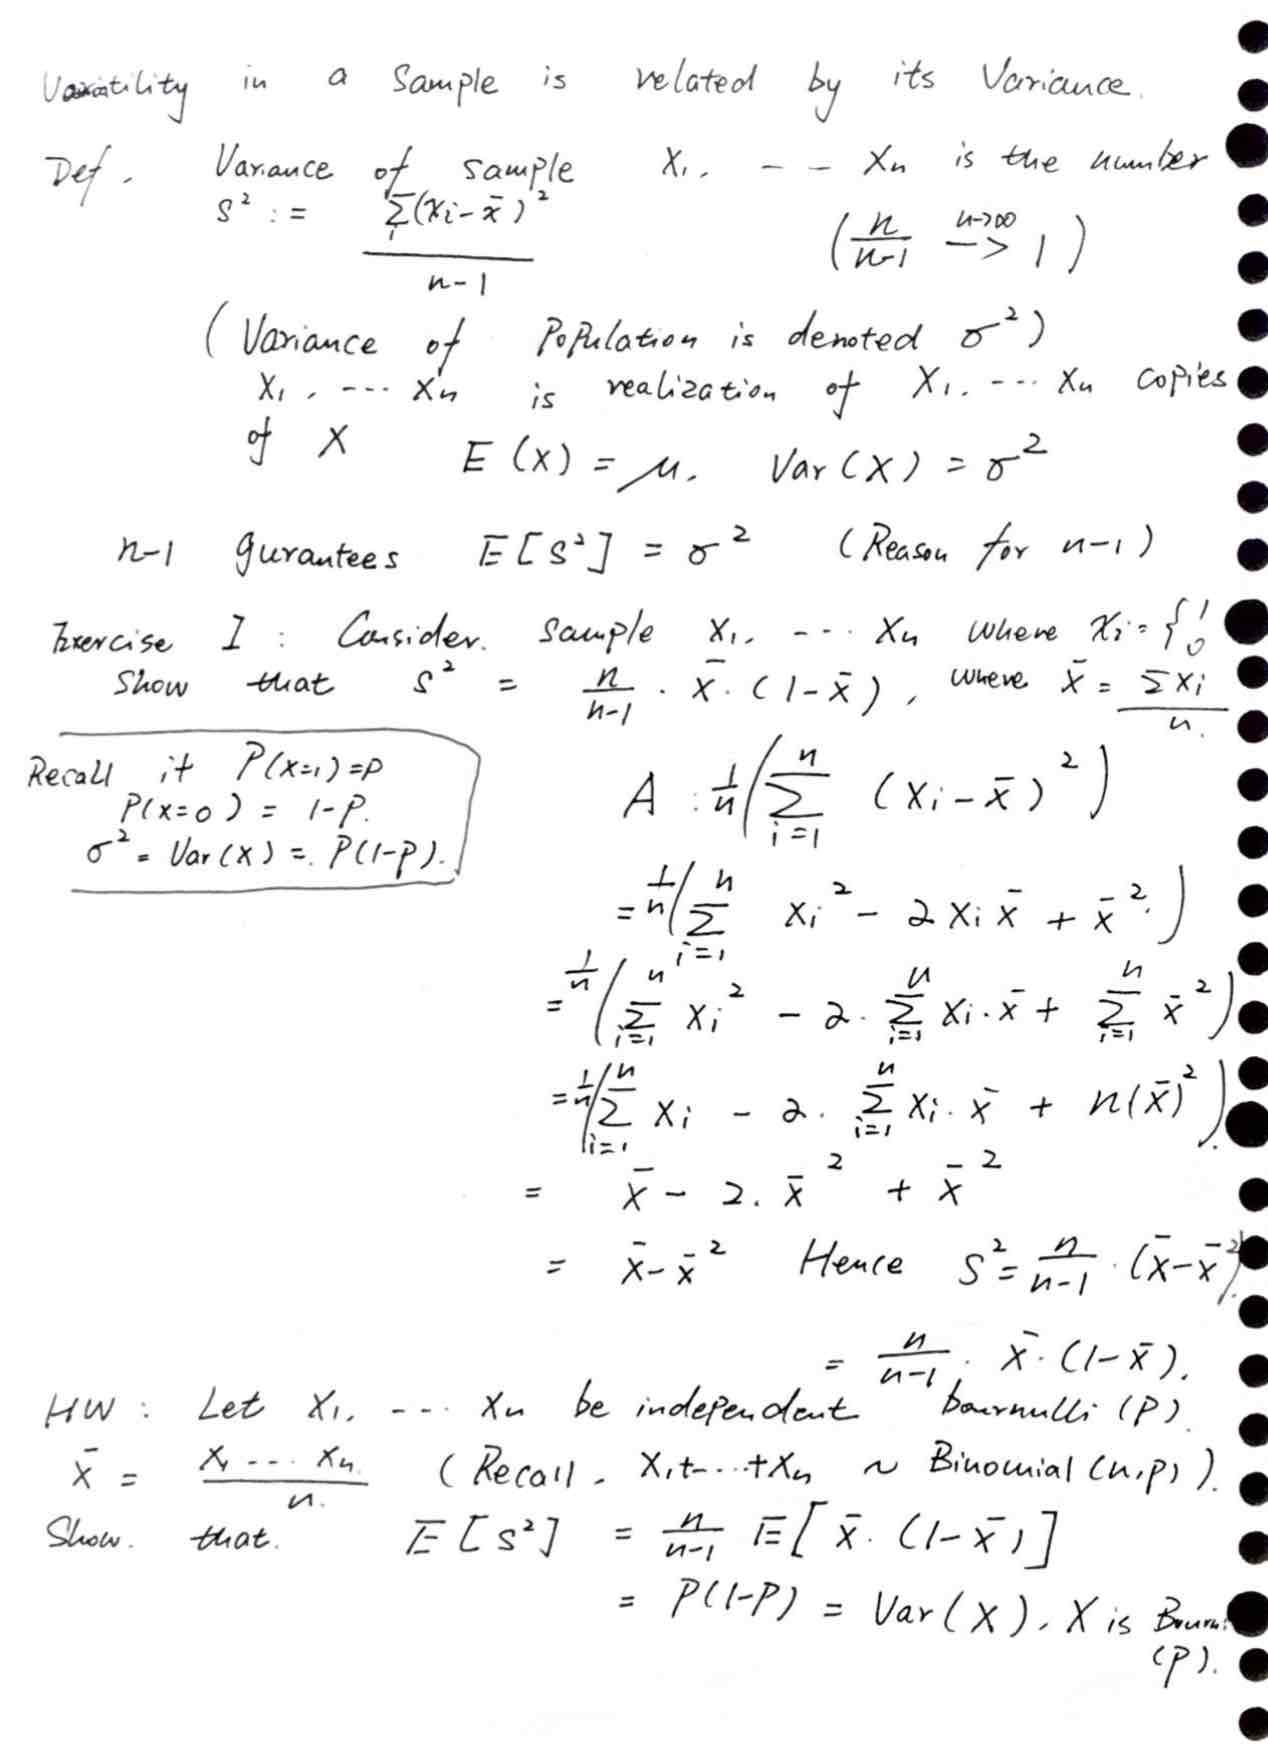 Variatility in a Sample is related by its Variance.
Def. Variance of sample X₁, - - Xn is the number
S² := Σᵢ(xi-x̄)² / n-1 (n/n-1 n->∞ -> 1)
(Variance of Population is denoted σ²)
X₁, --- Xn is realization of X₁, --- Xn copies
of X E(X) = μ, Var(X) = σ²
n-1 gurantees E[S²] = σ² (Reason for n-1)
Exercise I : Consider. sample X₁, --- Xn where Xi = { 1 0
Show that S² = n/n-1 · x̄ · (1-x̄), where x̄ = Σxi / n.
Recall if P(X=1)=P
P(X=0) = 1-P.
σ² = Var(X) = P(1-P).
A : 1/n ( Σ i=1 n (Xi - x̄)² )
= 1/n ( Σ i=1 n Xi² - 2Xi x̄ + x̄². )
= 1/n ( Σ i=1 n Xi² - 2 · Σ i=1 n Xi · x̄ + Σ i=1 n x̄² )
= 1/n ( Σ i=1 n Xi - 2 · Σ i=1 n Xi · x̄ + n(x̄)² ).
= x̄ - 2. x̄² + x̄²
= x̄ - x̄² Hence S² = n/n-1 · (x̄ - x̄²).
= n/n-1 · x̄ · (1-x̄).
HW : Let X₁, --- Xn be independent bournulli (P).
x̄ = X₁ --- Xn. / n. (Recall, X₁+---+Xn ~ Binomial (n,p)).
Show. that. E[S²] = n/n-1 E[ x̄ · (1-x̄) ]
= P(1-P) = Var(X), X is Bourn.
(P).